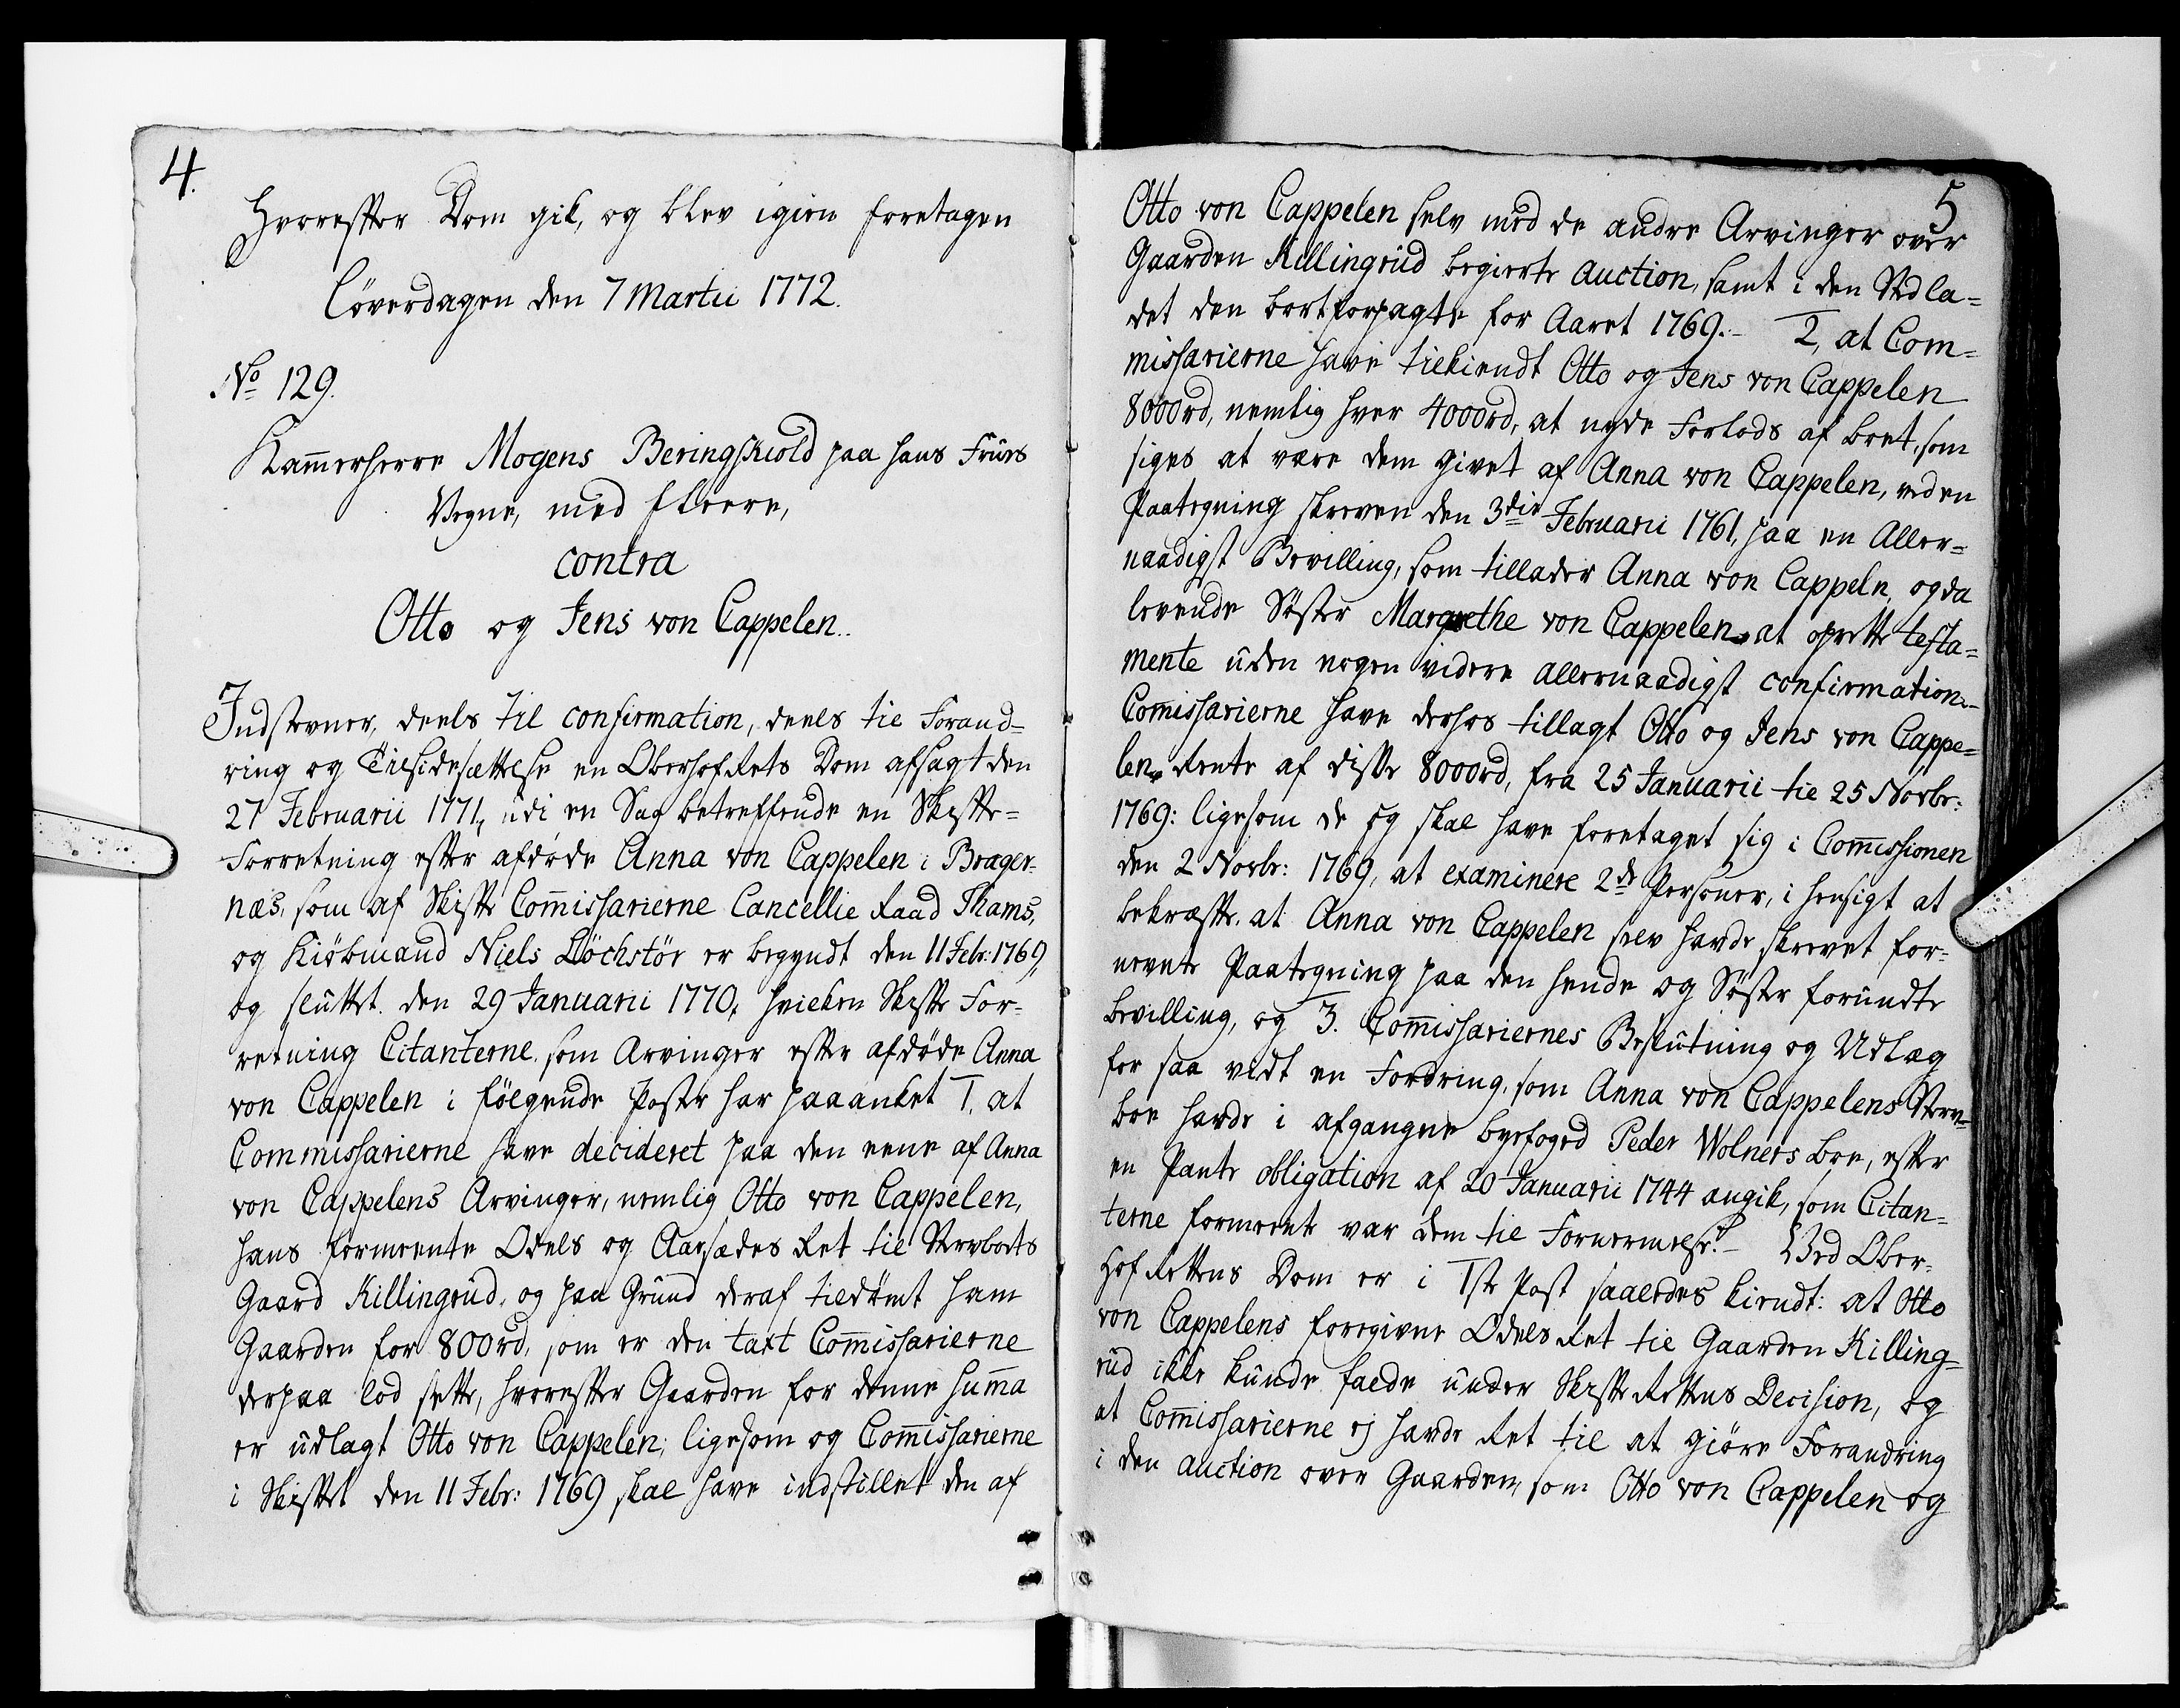 4.
Hvorefter Dom gik, og blev igien foretagen
Löverdagen den 7 Martii 1772.
No 129.
Kammerherre Mogens Beringskiold paa hans Frües
Vegne, med fleere,
contra
Otto og Jens von Cappelen.
Indstevner, deels til confirmation, deels til Forand=
ring og Tilsidesættelse en Oberhofrets Dom afsagt den
27 Februarii 1771, udi en Sag betreffende en Skifte=
Forretning efter afdøde Anna von Cappelen i Brager=
næs, som af Skifte Commissarierne Cancellie Raad Thams,
og Kiöbmand Niels Löchstör er begyndt den 11 Febr: 1769,
og sluttet den 29 Januarii 1770, hvilken Skifte For=
retning Citanterne som Arvinger efter afdöde Anna
von Cappelen i fölgende Poste har paaanket 1, at
Commissarierne have decideret paa den eene af Anna
von Cappelens Arvinger, nemlig Otto von Cappelen,
hans formeente Odels og Aasædes Ret til Sterbboets
Gaard Killingrüd, og paa Grund deraf tildömt ham
Gaarden for 800rd, som er den taxt Commissarierne
derpaa lod sette, hvorefter Gaarden for denne summa
er üdlagt Otto von Cappelen; ligesom og Commissarierne
i Skiftet den 11 Febr: 1769 skal have indstillet den af
5
Otto von Cappelen selv med de andre Arvinger over
Gaarden Killingrüd begierte Auction, samt i den Sted la=
det den bortforpagte for Aaret 1769. – 2, at Com=
missarierne have tilkiendt Otto og Jens von Cappelen
8000rd, nemlig hver 4000rd, at nyde Forlods af boet, som
siges at være dem givet af Anna von Cappelen, ved en
Paategning skreven den 3die Februarii 1761, paa en Aller=
naadigst Bevilling, som tillader Anna von Cappeln, og da
levende Söster Margrethe von Cappelen at oprette testa=
mente üden nogen videre allernaadigst confirmation.
Commissarierne have derhos tillagt Otto og Jens von Cappe=
len Rente af disse 8000rd, fra 25 Januarii til 25 Novbr:
1769: ligesom de og skal have foretaget sig i Commissionen
den 2 Novbr: 1769, at examinere 2de Personer, i hensigt at
bekræfte at Anna von Cappelen selv havde skrevet for=
nevnte Paategning paa den hende og Söster forundte
bevilling, og 3. Commissariernes Beslutning og Udlæg
for saa vidt en Fordring, som Anna von Cappelens Sterv=
boe havde i afgangne byefoged Peder Wolners boe, efter
en Pante obligation af 20 Januarii 1744 angik, som Citan=
terne formeente var dem til Fornermelse. – Ved Ober=
Hof Rettens Dom er i 1ste Post saaledes kiendt: at Otto
von Cappelens foregivne Odels Ret til Gaarden Killing=
rüd ikke kunde falde under Skifte Rettens Decision, og
at Commissarierne ej havde Ret til at giöre Forandring
i den auction over Gaarden, som Otto von Cappelen og